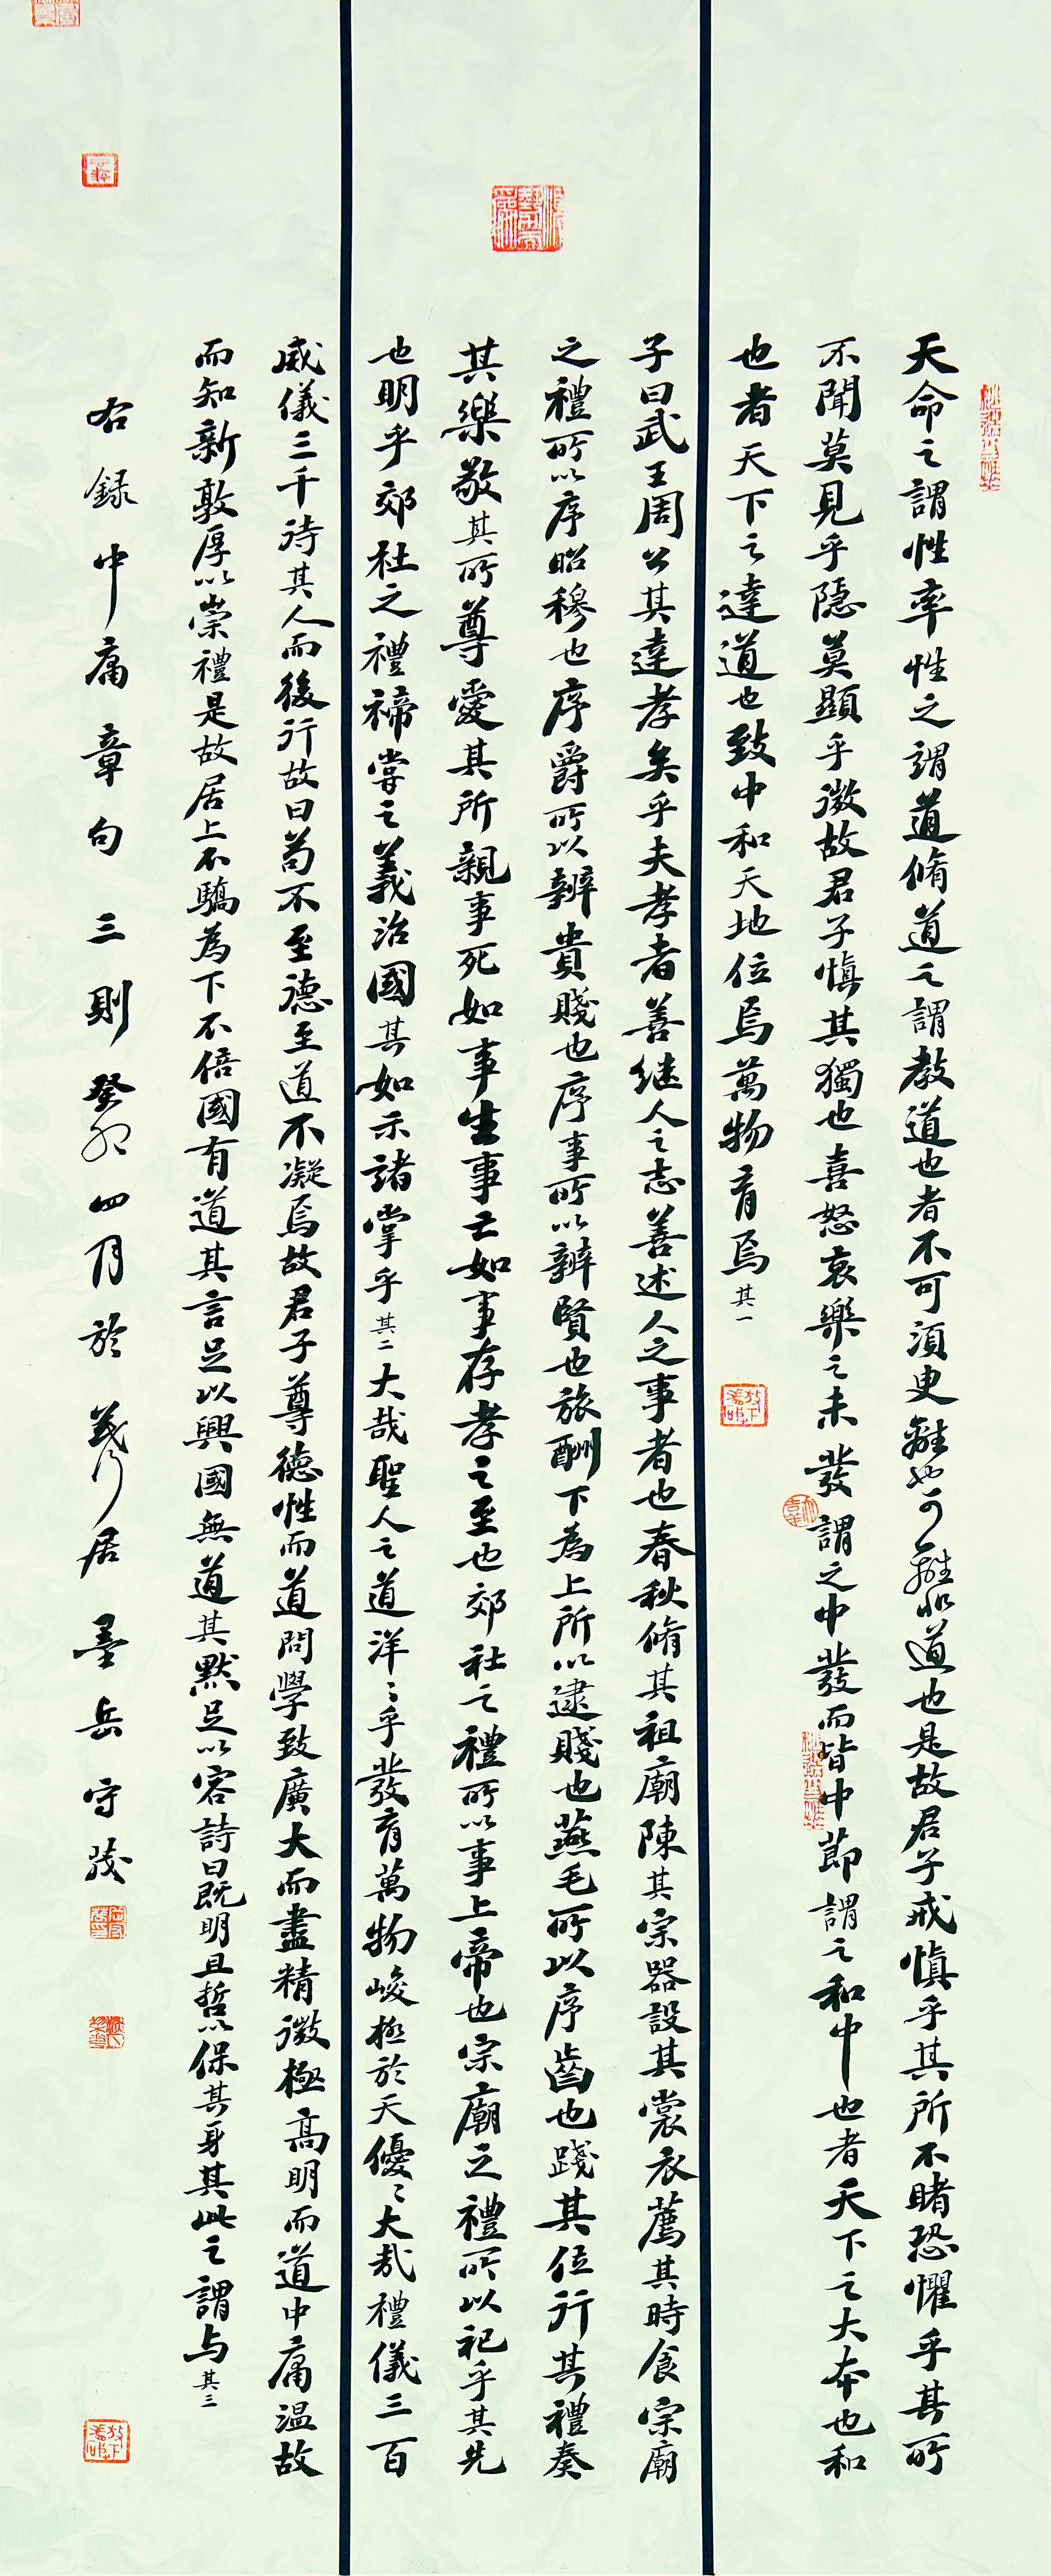 天命之謂性率性之謂道脩道之謂教道也者不可須臾離也可離非道也是故君子戒慎乎其所不睹恐懼乎其所
不聞莫見乎隱莫顯乎微故君子慎其獨也喜怒哀樂之未發謂之中發而皆中節謂之和中也者天下之大本也和
也者天下之達道也致中和天地位焉萬物育焉其一
子曰武王周公其達孝矣乎夫孝者善继人之志善述人之事者也春秋脩其祖廟陳其宗器設其裳衣薦其時食宗廟
之禮所以序昭穆也序爵所以辨貴賤也序事所以辨賢也旅酬下為上所以逮賤也燕毛所以序齒也踐其位行其禮奏
其樂敬其所尊愛其所親事死如事生事亡如事存孝之至也郊社之禮所以事上帝也宗廟之禮所以祀乎其先
也明乎郊社之禮禘嘗之義治國其如示諸掌乎其二大哉聖人之道洋〻乎發育萬物峻極於天優〻大哉禮儀三百
威儀三千待其人而後行故曰苟不至德至道不凝焉故君子尊德性而道問學致廣大而盡精微極高明而道中庸温故
而知新敦厚以崇禮是故居上不驕為下不倍國有道其言足以興國無道其默足以容詩曰既明且哲以保其身其此之謂与其三
右録中庸章句三則癸卯四月於義烏居墨岳守茂